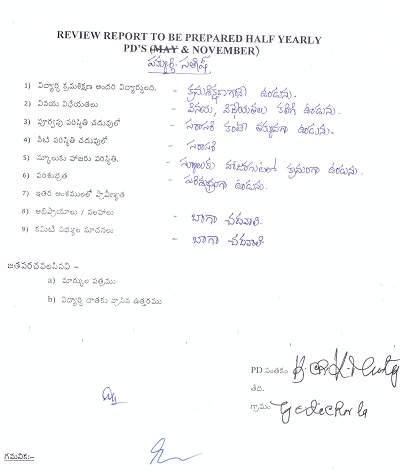 REVIEW REPORT TO BE PREPARED HALF YEARLY
PD'S (MAY & NOVEMBER)
1) విద్యార్థి క్రమశిక్షణ అందరి విద్యార్థులది. - క్రమశిక్షణగానే ఉండును.
2) వినయ విధేయతలు - వినయ, విధేయతలు కలిగి ఉండును.
3) పూర్వపు పరిస్థితి చదువులో - సరాసరి కంటె తక్కువగా ఉండును.
4) నేటి పరిస్థితి చదువులో - సరాసరి
5) స్కూలుకు హాజరు పరిస్థితి. - స్కూలుకు హాజరగుటలో క్రమంగా ఉండును.
6) పరిశుభ్రత - పరిశుభ్రంగా ఉండును.
7) ఇతర అంశములలో ప్రావీణ్యత
8) అభిప్రాయాలు / సలహాలు - బాగా చదవాలి.
9) కమిటీ సభ్యుల సూచనలు - బాగా చదవాలి
జతపరచవలసినవి –
a) మార్కుల పత్రము
b) విద్యార్థి దాతకు వ్రాసిన ఉత్తరము
PD సంతకం
తేది.
గ్రామం
గమనిక:–